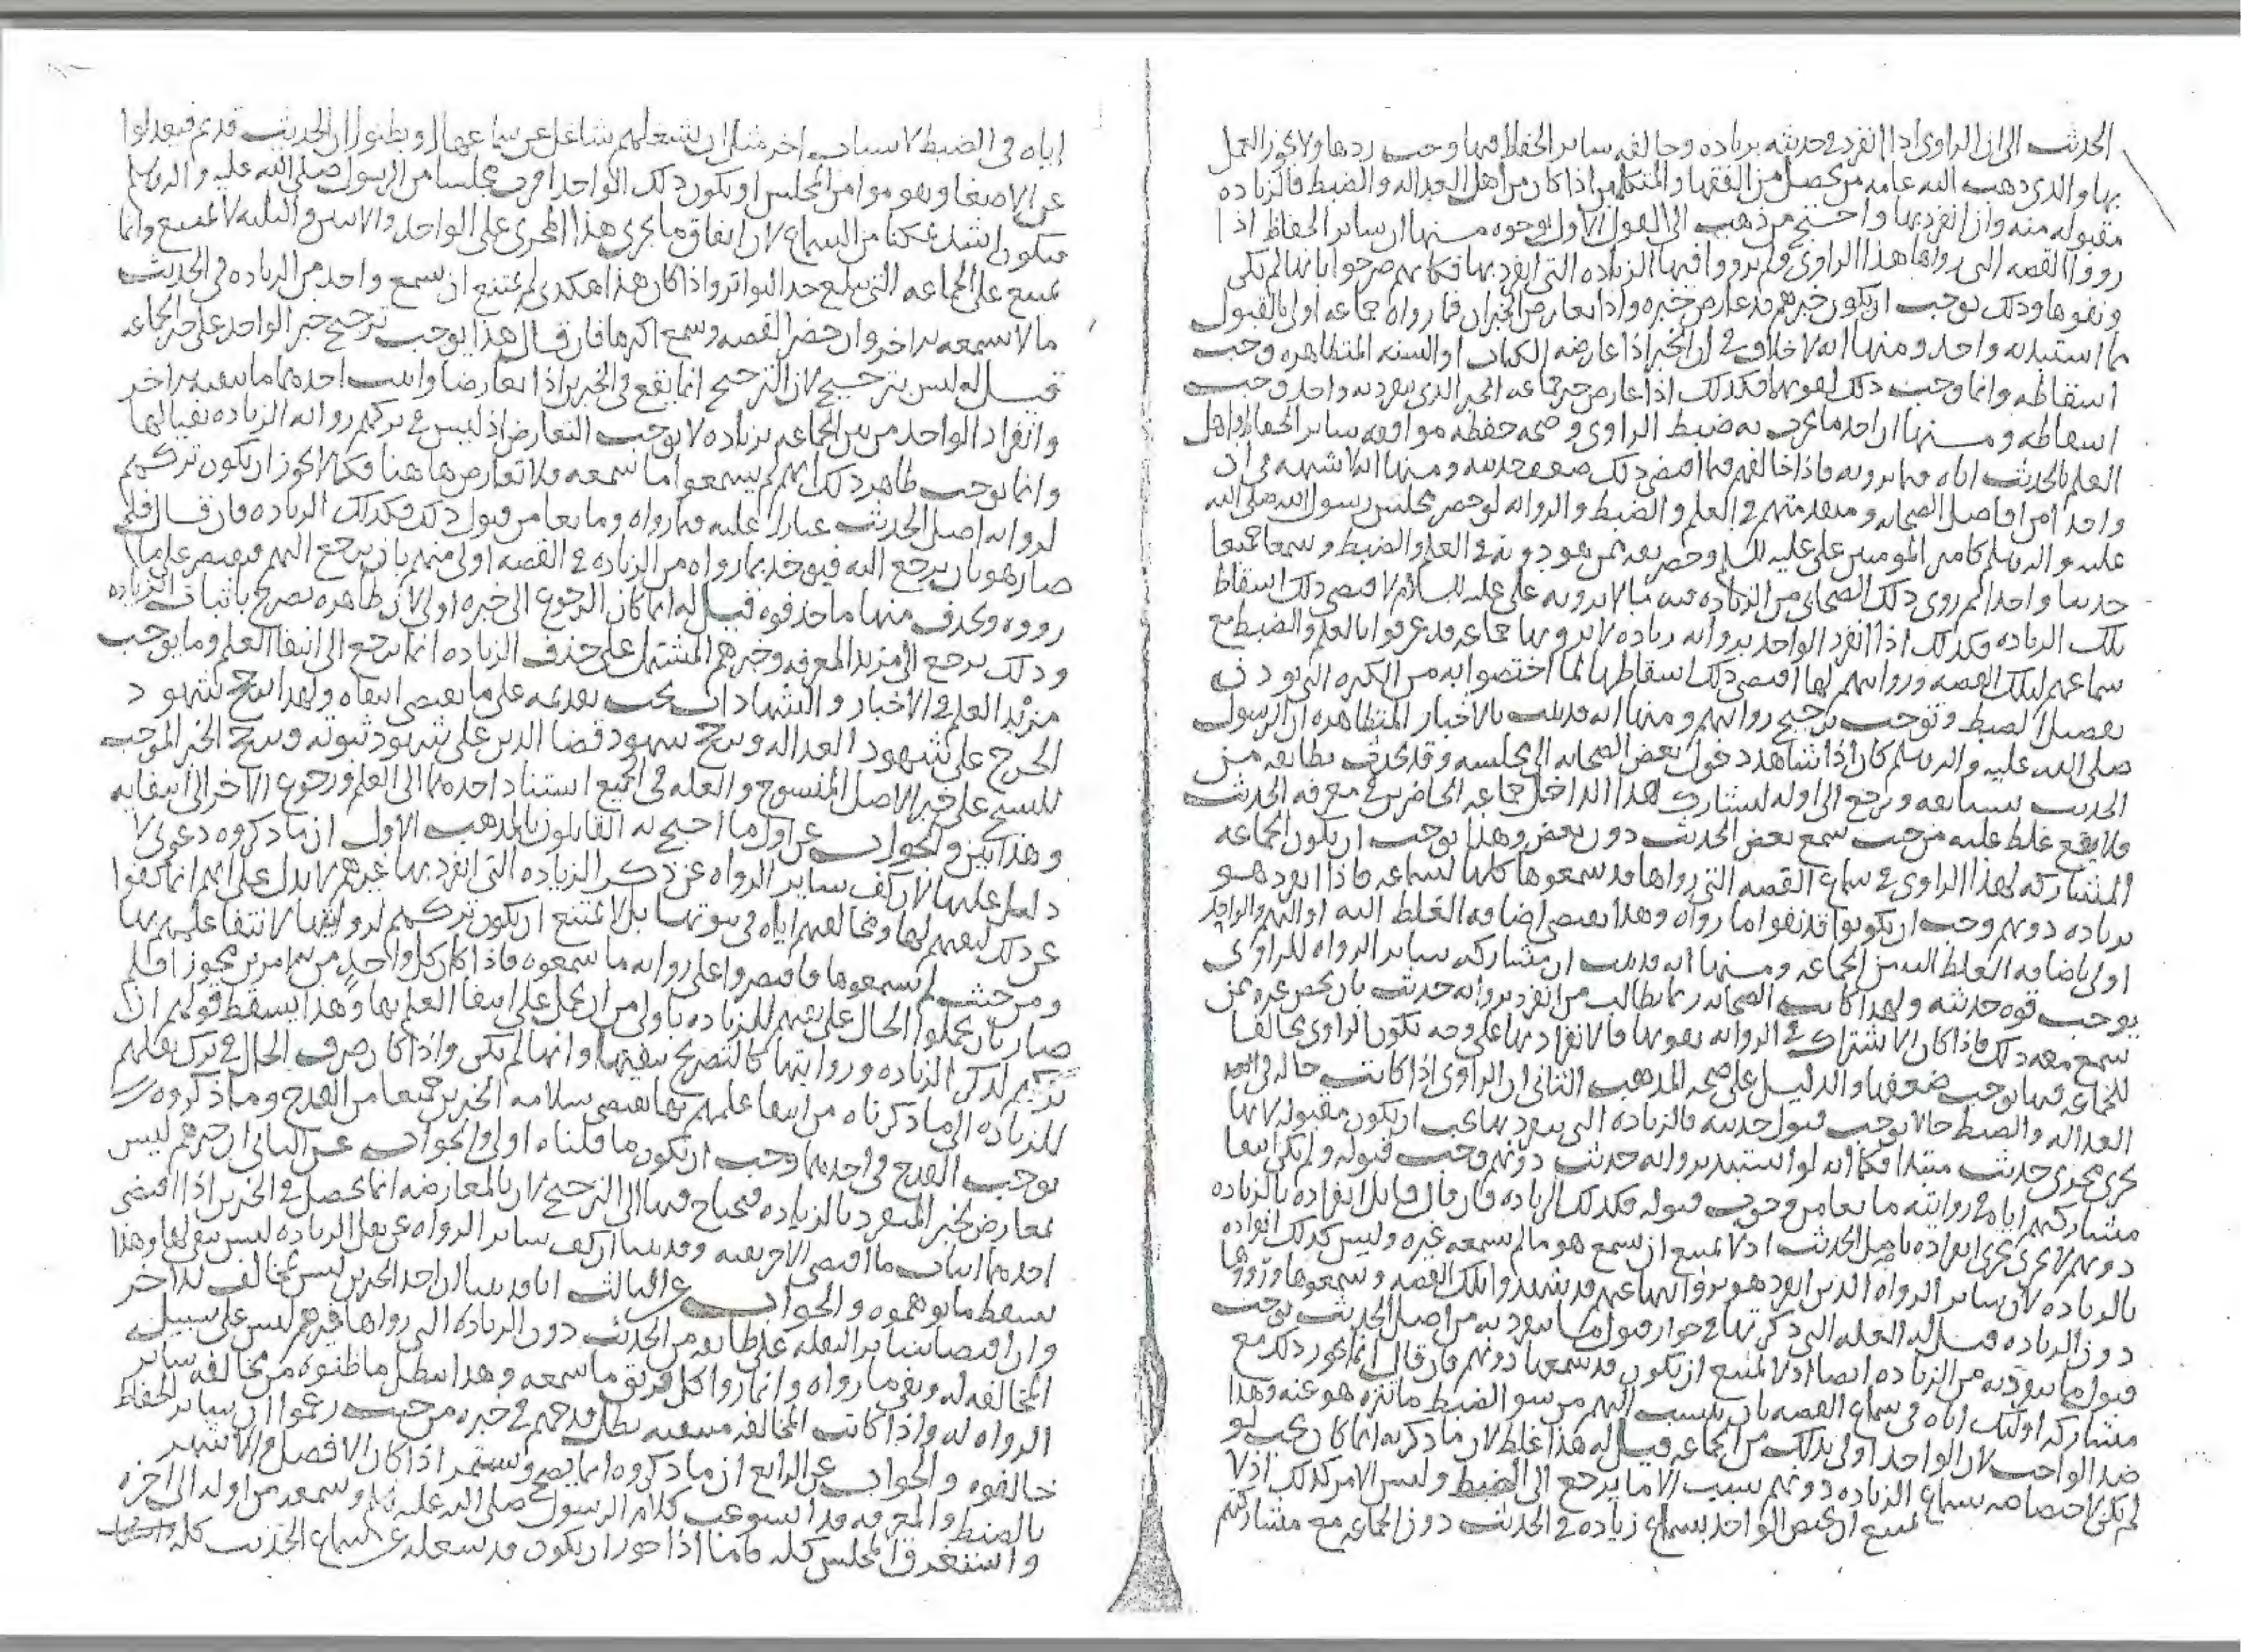 الحديث الى ان الراوي اذا انفرد في حديثه بزيادة وخالفه سائر الحفاظ فيها وجب ردها ولا يجوز العمل
بها والذي ذهب اليه عامة من يحصل من الفقها والمتكلمين اذا كان من اهل العدالة والضبط فالزيادة
مقبولة منه وان انفرد بها واحتج من ذهب الى القول الاول بوجوه منها ان سائر الحفاظ اذا
رووا القصة التي رواها هذا الراوي ولم يرووا فيها الزيادة التي انفرد بها فكانهم صرحوا بانها لم تكن
ونفوها وذلك يوجب ان يكون خبرهم قد عارض خبره واذا تعارض الخبران فما رواه جماعة اولى بالقبول
مما استبد به واحد ومنها انه لا خلاف في ان الخبر اذا عارضه الكتاب او السنة المتظاهرة وجب
اسقاطه وانما وجب ذلك لقوتها فكذلك اذا عارض خبر جماعة الخبر الذي ينفرد به واحد وجب
اسقاطه ومنها ان احد ما يعرف به ضبط الراوي وصحة حفظه موافقة سائر الحفاظ واهل
العلم بالحديث اياه فيما يرويه فاذا خالفهم فيها اقتضى ذلك ضعف حديثه ومنها انه لا شبهة في ان
واحدا من افاضل الصحابة ومتقدمتهم في العلم والضبط والرواية لو حضر مجلس رسول الله صلى الله
عليه واله وسلم كامير المومنين علي عليه السلم وحضر معه من هو دونه في العلم والضبط وسمعا جميعا
حديثا واحدا ثم روى ذلك الصحابي من الزيادة فيه ما لا يرويه علي عليه السلام لاقتضى ذلك اسقاط
تلك الزيادة فكذلك اذا انفرد الواحد برواية زيادة لا يرويها جماعة قد عرفوا بالعلم والضبط مع
سماعهم لتلك القصة وروايتهم لها اقتضى ذلك اسقاطها لما اختصوا به من الكثرة التي تؤذن
بفضل الضبط وتوجب ترجيح روايتهم ومنها انه قد ثبت بالاخبار المتظاهرة ان الرسول
صلى الله عليه واله وسلم كان اذا شاهد دخول بعض الصحابة الى مجلسه وقد تحدث بطائفة من
الحديث يستانفه ويرجع الى اوله ليشارك هذا الداخل جماعة الحاضرين في معرفة الحديث
فلا يقع غلط عليه من حيث سمع بعض الحديث دون بعض وهذا يوجب ان يكون الجماعة
المشاركة لهذا الراوي في سماع القصة التي رواها قد سمعوها كلها لسماعه فاذا انفرد هو
بزيادة دونهم وجب ان يكونوا قد نفوا ما رواه وهذا يقتضي اضافة الغلط اليه او اليهم والواحد
اولى باضافة الغلط اليه من الجماعة ومنها انه قد ثبت ان مشاركة سائر الرواة للراوي
يوجب قوة حديثه ولهذا كانت الصحابة ربما تطالب من انفرد برواية حديث بان يحضر غيره ممن
سمع معه ذلك فاذا كان الاشتراك في الرواية يقويها فالانفراد بها على وجه يكون الراوي مخالفا
للجماعة فيها يوجب ضعفها والدليل على صحة المذهب الثاني ان الراوي اذا كانت حاله في
العدالة والضبط حالا يوجب قبول حديثه فالزيادة التي ينفرد بها يجب ان يكون مقبولة لانها
تجري مجرى حديث مبتدا فكما انه لو استبد برواية حديث دونهم وجب قبوله ولم يكن انتفا
مشاركتهم اياه في روايته مانعا من وجوب قبوله فكذلك الزيادة فان قال قائل انفراده بالزيادة
دونهم لا يجري مجرى انفراده باصل الحديث اذ لا يمتنع ان يسمع هو ما لم يسمعه غيره وليس كذلك انفراده
بالزيادة لان سائر الرواة الذين انفرد هو برواياتها عنهم قد شهدوا تلك القصة وسمعوها ورووها
دون الزيادة قيل له العلة التي ذكرتها في جواز قبول ما ينفرد به من اصل الحديث توجب
قبول ما ينفرد به من الزيادة ايضا اذ لا يمتنع ان يكون قد سمعها دونهم فان قال انما يجوز ذلك مع
مشاركة اولئك اياه في سماع القصة بان ينسب اليهم من سو الضبط ما نزه هو عنه وهذا
ضد الواجب لان الواحد اولى بذلك من الجماعة قيل له هذا غلط لان ما ذكرته انما كان يجب لو
لم يكن لاختصاصه بسماع الزيادة دونهم سبب الا ما يرجع الى الضبط وليس الامر كذلك اذ لا
يمتنع ان يختص الواحد بسماع زيادة في الحديث دون الجماعة مع مشاركتهم
اياه في الضبط لاسباب اخر مثل ان يشغلهم شاغل عن سماعها او يظنوا ان الحديث قد تم فيعدلوا
عن الاصغا وهموا من المجلس او يكون ذلك الواحد اقرب مجلسا من الرسول صلى الله عليه واله وسلم
فيكون اشد تمكنا من السماع لان اتفاق ما يجري هذا المجرى على الواحد والاثنين والثلثة لا يمتنع وانما
يمتنع على الجماعة التي تبلغ حد التواتر واذا كان هذا هكذى لم يمتنع ان يسمع واحد من الزيادة في الحديث
ما لا يسمعه من اخر وان حضر القصة وسمع اكثرها فان قال هذا يوجب ترجيح خبر الواحد على خبر الجماعة
قيل له ليس بترجيح لان الترجيح انما يقع في الخبرين اذا تعارضا واثبت احدهما ما نفيه الاخر
وانفراد الواحد من بين الجماعة بزيادة لا يوجب التعارض اذ ليس في تركهم رواية الزيادة نفيا لها
وانما يوجب ظاهر ذلك انهم لم يسمعوا ما سمعه فلا تعارض هاهنا فكما يجوز ان يكون تركهم
لرواية اصل الحديث عيارا عليه فيما رواه ومانعا من قبول ذلك فكذلك الزيادة فان قال فلم
صار هو بان يرجع اليه فيوخذ بما رواه من الزيادة في القصة اولى منهم بان يرجع اليهم فيقتصر على ما
رووه ويحذف منها ما حذفوه قيل له انما كان الرجوع الى خبره اولى لان ظاهره تصريح باثبات الزيادة
وذلك يرجع الى مزيد المعرفة وخبرهم المشتمل على حذف الزيادة انما يرجع الى انتفا العلم وما يوجب
مزيد العلم في الاخبار والشهادات يجب تقديمه على ما يقتضي انتفاه ولهذا يرجح شهود
الجرح على شهود العدالة ويرجح شهود قضا الدين على شهود ثبوته ويرجح الخبر الموجب
للنسخ على خبر الاصل المنسوخ والعلة في الجميع استناد احدهما الى العلم ورجوع الاخر الى انتفائه
وهذا بين والجواب عن اول ما احتج به القائلون بالمذهب الاول ان ما ذكروه دعوى لا
دليل عليها لان كف سائر الرواة عن ذكر الزيادة التي انفرد بها غيرهم لا يدل على انهم انما كفوا
عن ذلك لنفيهم لها ومخالفتهم اياه في ثبوتها بل لا يمتنع ان يكون تركهم لروايتها لانتفا علمهم بها
ومن حيث لم يسمعوها فاقتصروا على رواية ما سمعوه فاذا كان كل واحد من الامرين مجوزا فلم
صار بان يحملوا الحال على نفيهم للزيادة باولى من ان يحمل على انتفا العلم بها وهذا يسقط قولهم ان
تركهم لذكر الزيادة وروايتها كالتصريح بنفيها وانها لم تكن واذا كان صرف الحال في ترك نقلهم
للزيادة الى ما ذكرناه من انتفا علمهم بها يقتضي سلامة الخبرين جميعا من القدح وما ذكروه
يوجب القدح في احدهما وجب ان يكون ما قلناه اولى والجواب عن الثاني ان خبرهم ليس
بمعارض لخبر المنفرد بالزيادة فيحتاج فيها الى الترجيح لان المعارضة انما تحصل في الخبرين اذا اقتضى
احدهما اثبات ما اقتضى الاخر نفيه وقد بينا ان كف سائر الرواة عن نقل الزيادة ليس بنفي لها وهذا
يسقط ما توهموه والجواب عن الثالث انا قد بينا ان احد الخبرين ليس بمخالف للاخر
وان اقتصار سائر النقلة على طائفة من الحديث دون الزيادة التي رواها غيرهم ليس على سبيل
المخالفة له ونفي ما رواه وانما روا كل فريق ما سمعه وهذا يبطل ما ظنوه من مخالفة سائر
الرواة له واذا كانت المخالفة منتفية بطل قدحهم في خبره من حيث زعموا ان سائر الحفاظ
خالفوه والجواب عن الرابع ان ما ذكروه انما يصح ويستمر اذا كان الافضل والاشهر
بالضبط والمعرفة قد استوعب كلام الرسول صلى الله عليه واله وسلم وسمعه من اوله الى اخره
واستغرق المجلس كله فاما اذا جوزنا ان يكون قد شغله عن سماع الحديث كله